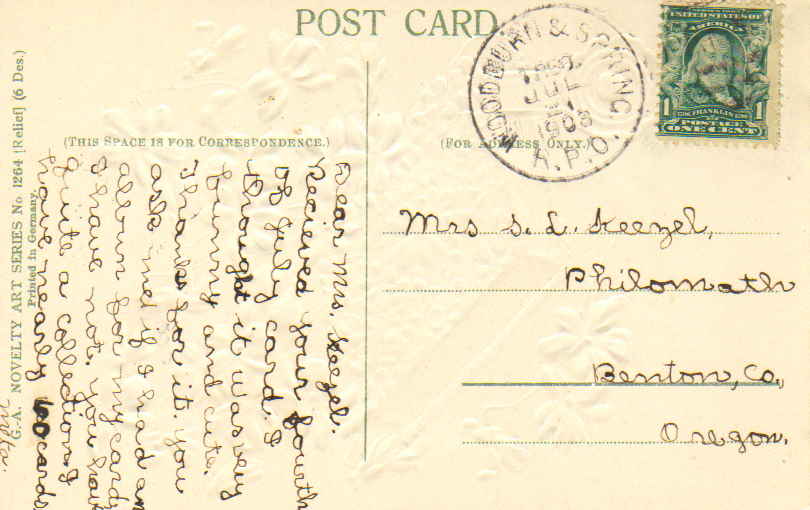 POST CARD
WOODBURN & SPRING.
JUL
1908
R.P.O.
UNITED STATES OF
AMERICA
1 FRANKLIN 1
POSTAGE
ONE CENT
(THIS SPACE IS FOR CORRESPONDENCE.)
(FOR ADDRESS ONLY.)
Mrs S. L. Keezel,
Philomath
Benton, Co,
Oregon.
Dear Mrs. Keezel.
Recieved your fourth
of July card. I
thought it was very
funny and cute.
Thanks for it. you
ask me if I had an
album for my cards
I have not. you have
quite a collection. I
have nearly 100 cards
G.-A. NOVELTY ART SERIES No. 1264 [Relief] (6 Des.)
Printed in Germany.